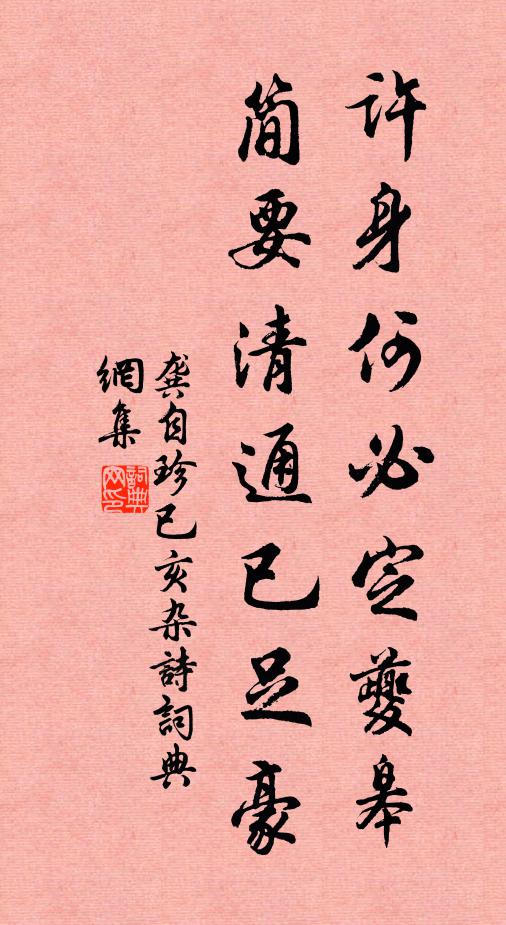 許身何必定夔皋
简要清通已足豪
龔自珍己亥杂詩詞典
網集
詞典网印